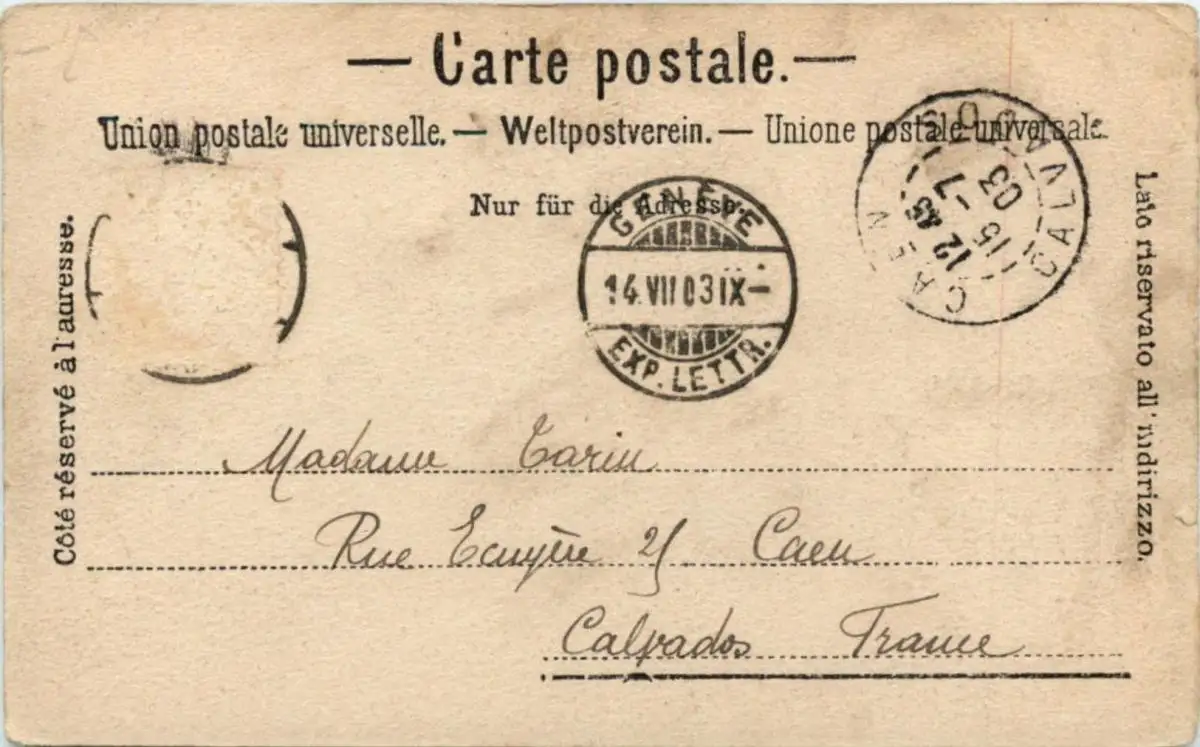 — Carte postale. —
Union postale universelle. — Weltpostverein. — Unione postale universale.
Nur für die Adresse.
Côté réservé à l'adresse.
Lato riservato all' indirizzo.
GENÈVE
14.VII.03 IX –
EXP. LETTR.
CAEN CALVADOS
12 45
15 -7
03
Madame Tarin
Rue Ecuyère 25 Caen
Calvados France